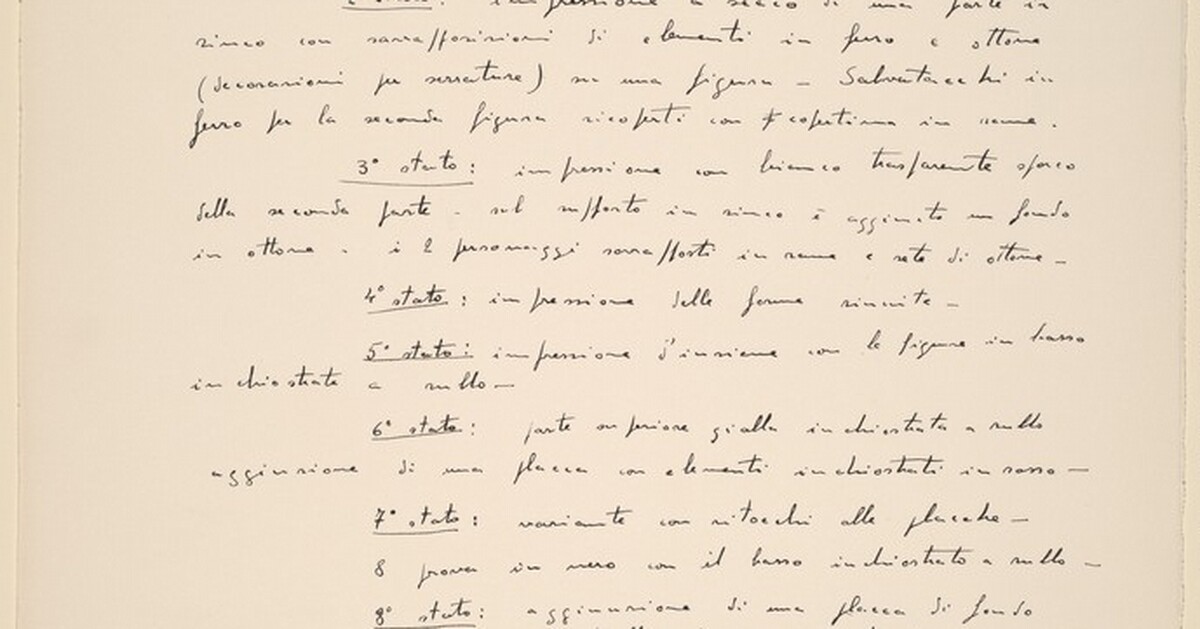 2° stato: impressione a secco di una parte in
zinco con sovrapposizioni di elementi in ferro e ottone
(decorazioni per serrature) su una figura – Salvatacchi in
ferro per la seconda figura ricoperti con copertina in rame.
3° stato: impressione con bianco trasparente sporco
della seconda parte - sul supporto in zinco è aggiunto un fondo
in ottone - i 2 personaggi sovrapposti in rame e rete di ottone –
4° stato: impressione delle forme riunite –
5° stato: impressione d'insieme con le figure in basso
inchiostrate a rullo –
6° stato: parte superiore gialla inchiostrata a rullo
aggiunzione di una placca con elementi inchiostrati in rosso –
7° stato: variante con ritocchi alle placche –
8 prova in nero con il basso inchiostrato a rullo –
8° stato: aggiunzione di una placca di fondo